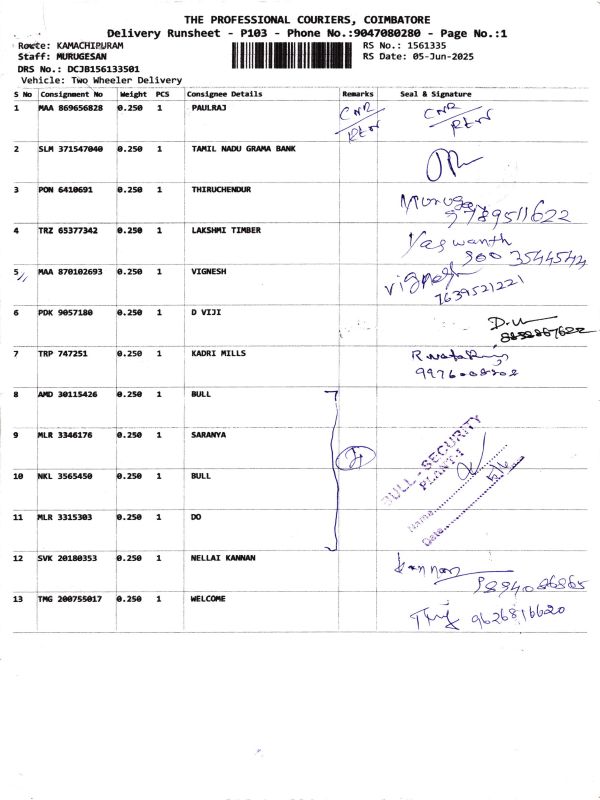 THE PROFESSIONAL COURIERS, COIMBATORE
Delivery Runsheet - P103 - Phone No.:9047080280 - Page No.:1
Route: KAMACHIPURAM RS No.: 1561335
Staff: MURUGESAN RS Date: 05-Jun-2025
DRS No.: DCJB156133501
Vehicle: Two Wheeler Delivery
S No Consignment No Weight PCS Consignee Details Remarks Seal & Signature
1 MAA 869656828 0.250 1 PAULRAJ CNR CNR
RTN RTN
2 SLM 371547040 0.250 1 TAMIL NADU GRAMA BANK
3 PON 6410691 0.250 1 THIRUCHENDUR Murugan
9789511622
4 TRZ 65377342 0.250 1 LAKSHMI TIMBER Yaswanth
900 3544544
5 MAA 870102693 0.250 1 VIGNESH vignesh
7639521221
6 PDK 9057180 0.250 1 D VIJI
7 TRP 747251 0.250 1 KADRI MILLS
8 AMD 30115426 0.250 1 BULL
9 MLR 3346176 0.250 1 SARANYA
10 NKL 3565450 0.250 1 BULL
11 MLR 3315303 0.250 1 DO
BULL - SECURITY
PLANT-1
Name
Date 5/6
12 SVK 20180353 0.250 1 NELLAI KANNAN Kannan
9894086865
13 TMG 200755017 0.250 1 WELCOME 9626816620